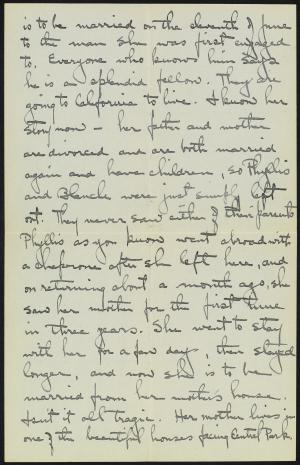 is to be married on the eleventh of June
to the man she was first engaged
to. Everyone who knows him says
he is a splendid fellow. They are
going to California to live. I know her
story now – her father and mother
are divorced and are both married
again and have children, so Phyllis
and Blanche were just simply left
out. They never saw either of their parents
Phyllis as you know went abroad with
a chaperone after she left here, and
on returning about a month ago, she
saw her mother for the first time
in three years. She went to stay
with her for a few days, then stayed
longer, and now she is to be
married from her mother's house.
Isn't it all tragic. Her mother lives in
one of the beautiful houses facing Central Park